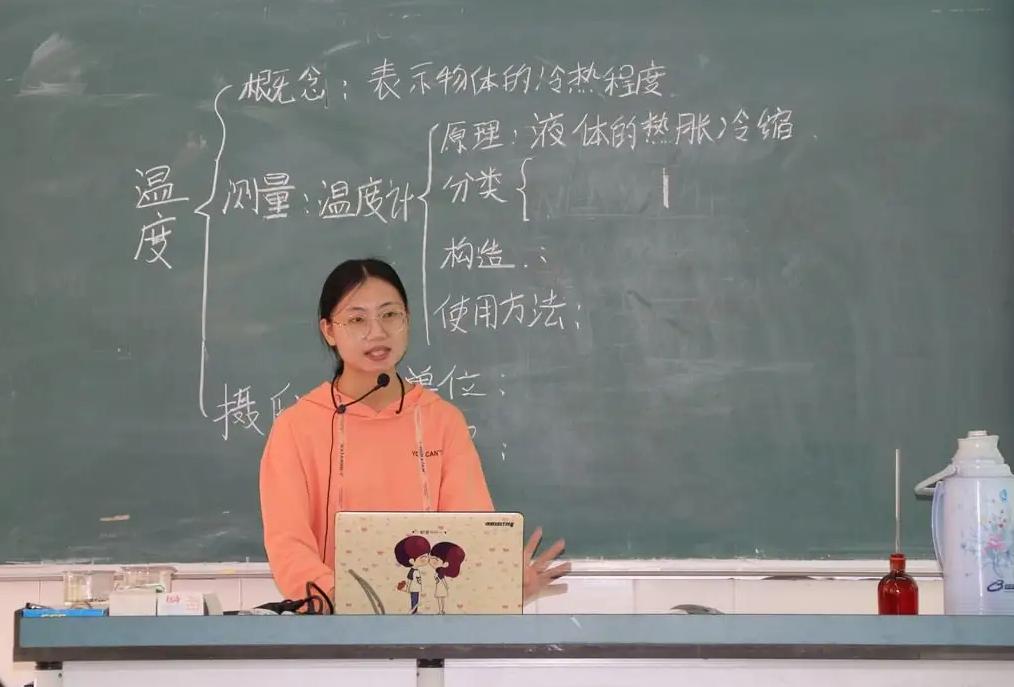 概念：表示物体的冷热程度.
原理：液体的热胀冷缩.
温度
测量：温度计
分类
构造：
使用方法：
摄
单位：
：
YOU CAN'T